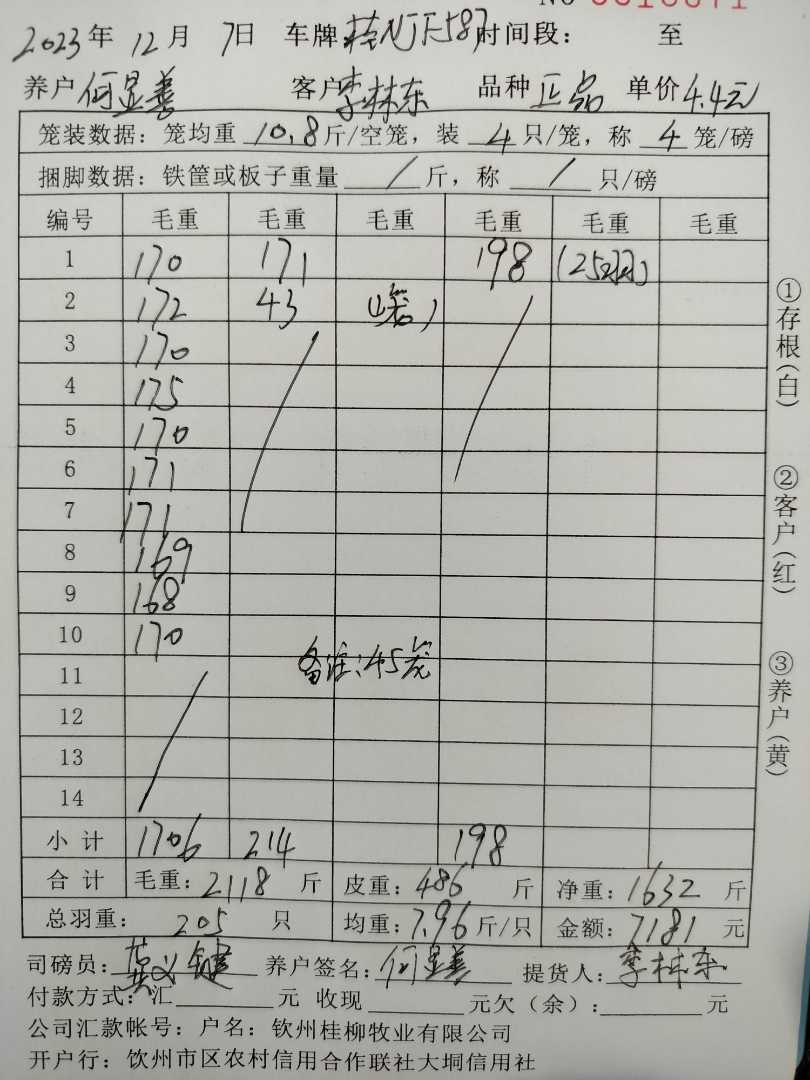 2023年 12月 7日 车牌:桂NJF587时间段: 至
养户何显善 客户李林东 品种正品 单价4.4元
笼装数据:笼均重 10.8斤/空笼,装 4只/笼,称 4笼/磅
捆脚数据:铁筐或板子重量 / 斤,称 / 只/磅
编号 毛重 毛重 毛重 毛重 毛重 毛重
1 170 171 198 (25羽)
2 172 43
3 170
4 175
5 170
6 171
7 171
8 169
9 168
10 170
备注:45笼
11
12
13
14
小计 1706 214 198
合计 毛重:2118 斤 皮重:486 斤 净重:1632 斤
总羽重: 205 只 均重:7.96斤/只 金额:7181 元
司磅员: 养户签名:何显善 提货人:李林东
付款方式:汇 元 收现 元欠(余): 元
公司汇款帐号:户名:钦州桂柳牧业有限公司
开户行:饮州市区农村信用合作联社大垌信用社
①存根(白)
②客户(红)
③养户(黄)